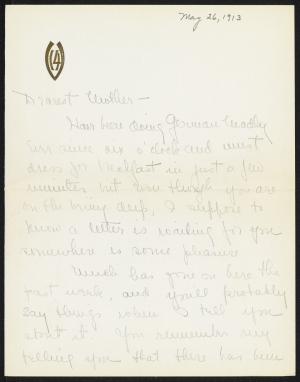 May 26, 1913
Dearest Mother –
Have been doing German madly
ever since six o'clock and must
dress for breakfast in just a few
minutes but even though you are
on the briny deep, I suppose to
know a letter is waiting for you
somewhere is some pleasure.
Much has gone on here the
past week, and you'll probably
say things when I tell you
about it. You remember my
telling you that there has been